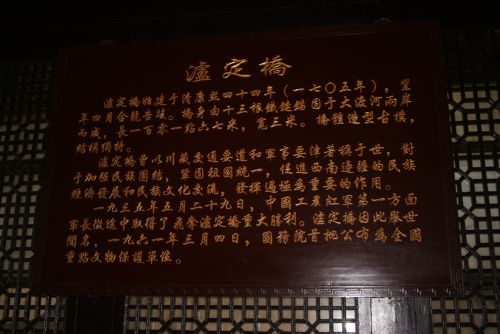 瀘定橋
瀘定橋始建于清康熙四十四年（一七〇五年），翌
年四月合龍告竣。橋身由十三根鐵鏈錨固于大渡河兩岸
而成，長一百零一點六七米，寬三米。橋體造型古樸，
結構獨特。
瀘定橋曾以川藏交通要道和軍事要津著稱于世，對
于加强民族團結，鞏固祖國統一，促進西南邊疆的民族
經濟發展和民族文化交流，發揮過極爲重要的作用。
一九三五年五月二十九日，中國工農紅軍第一方面
軍長征途中取得了飛奪瀘定橋重大勝利。瀘定橋因此舉世
聞名，一九六一年三月四日，國務院首批公布爲全國
重點文物保護單位。